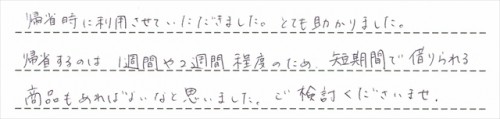 帰省時に利用させていただきました。とても助かりました。
帰省するのは、1週間や2週間程度のため、短期間で借りられる
商品もあればよいなと思いました。ご検討くださいませ。